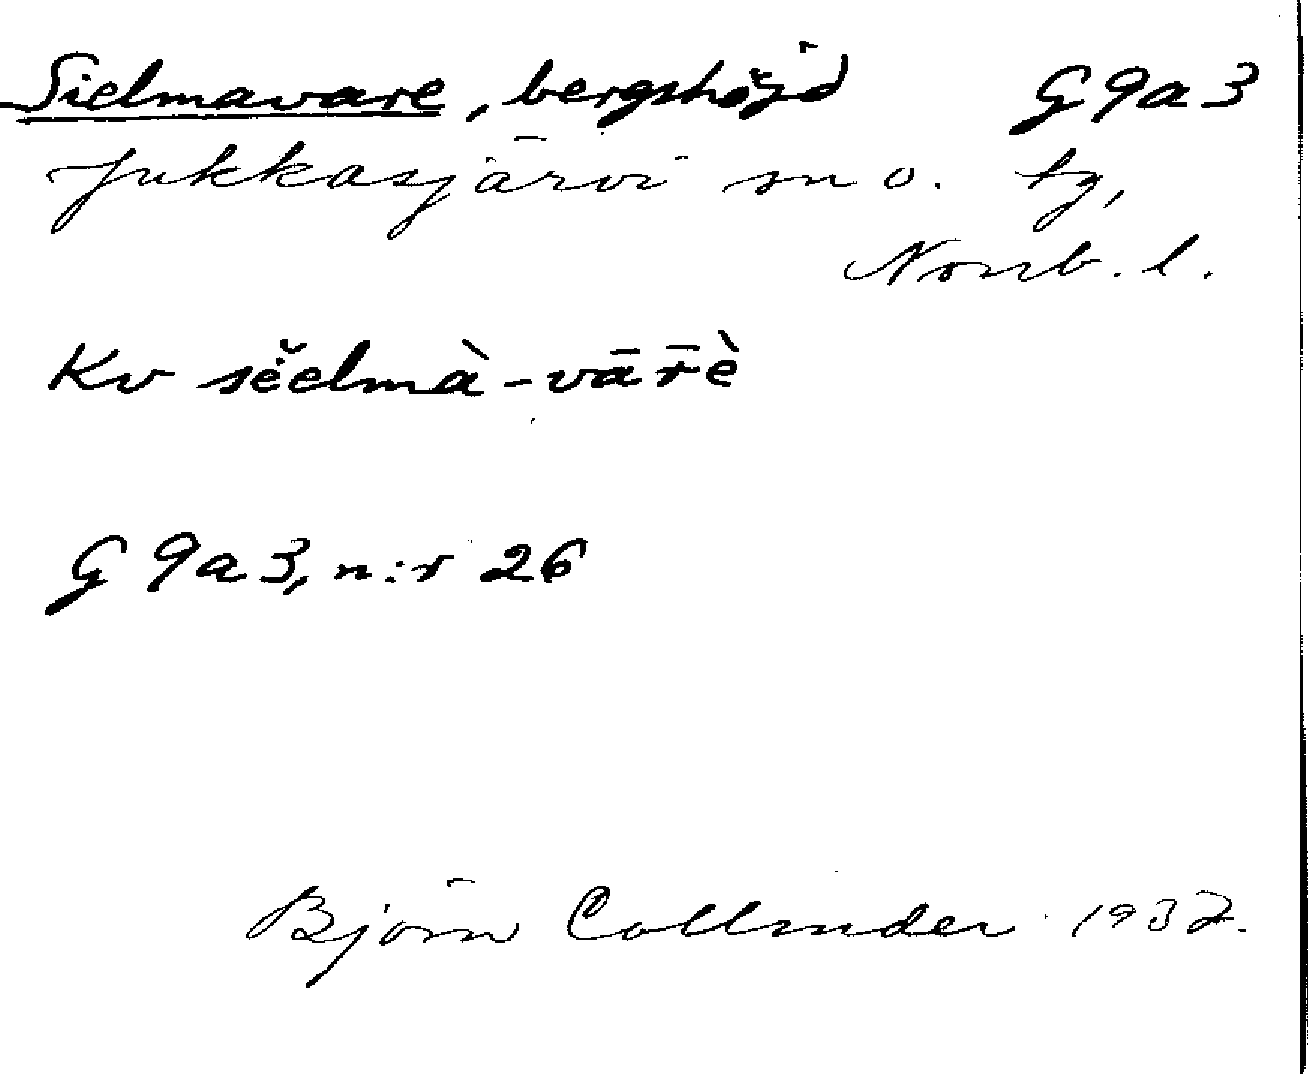 Sielmavare, bergshöjd G9a3
Jukkasjärvi sn o. tg,
Norrb. l.
Kv sĕelmà-vārè
G 9a 3, n:r 26
Björn Collinder 1932.